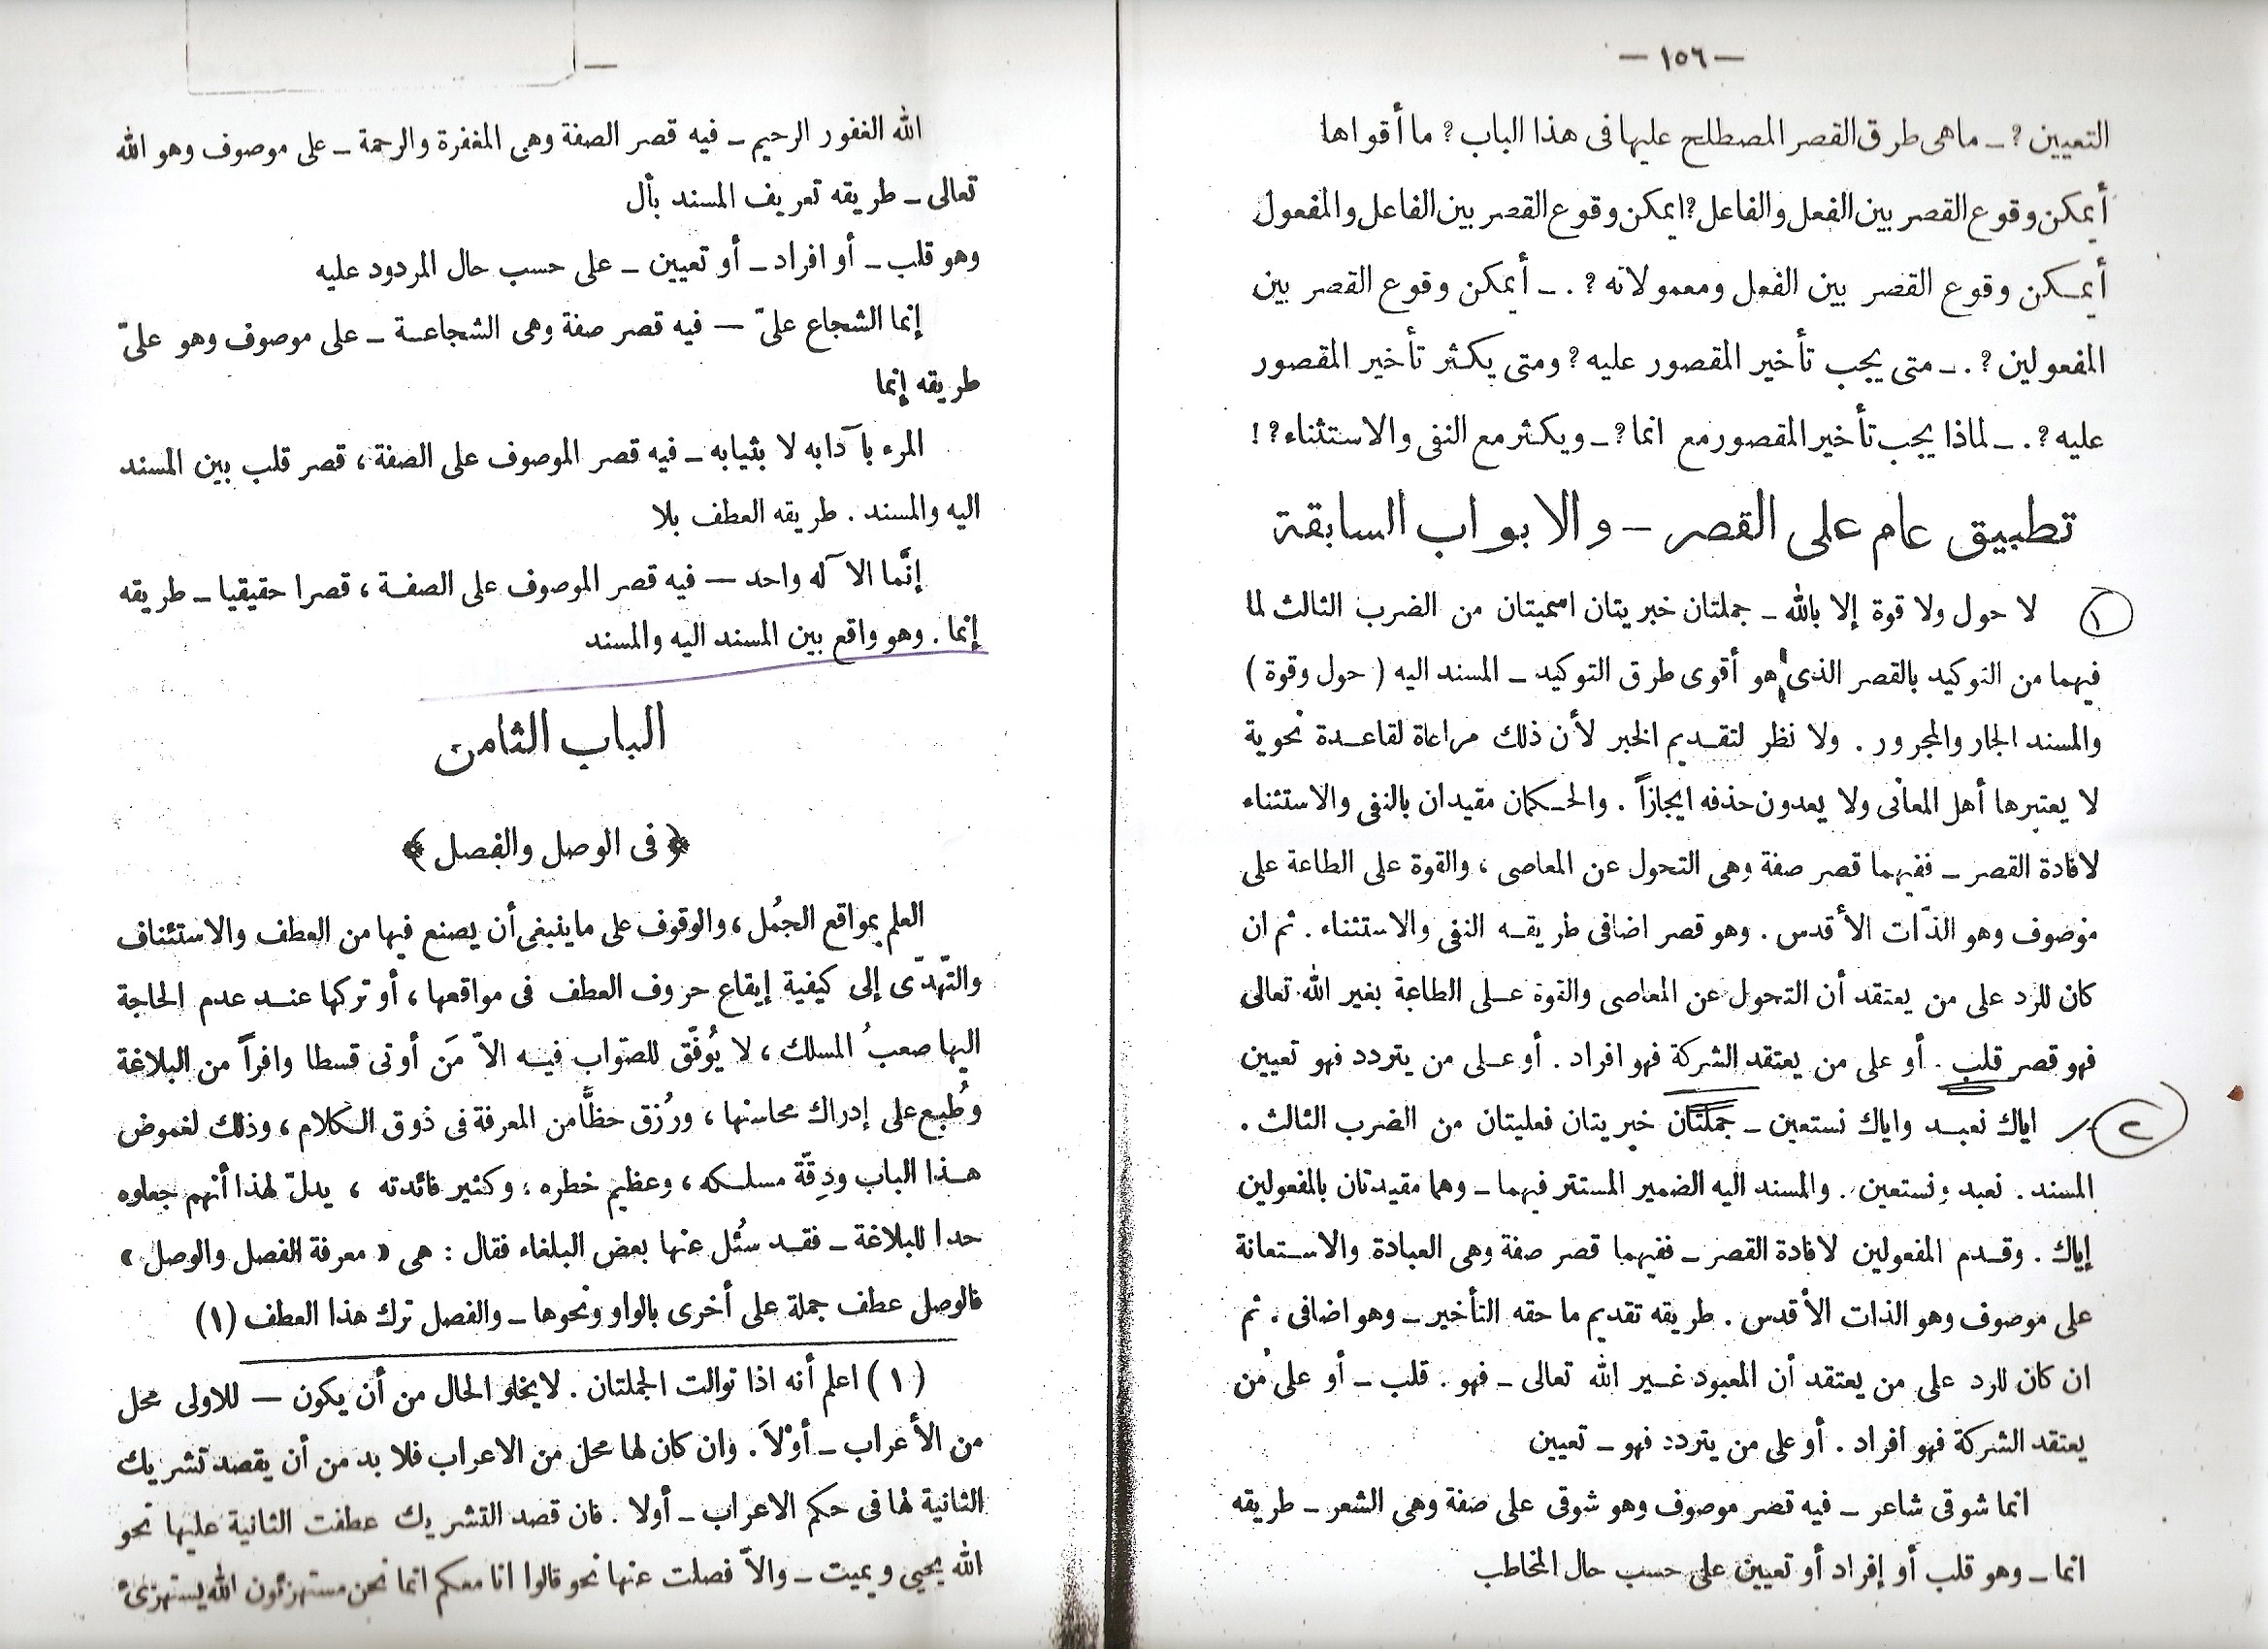 — ١٥٦ —
التعيين ? ــ ماهى طرق القصر المصطلح عليها فى هذا الباب ? ما أقواها
أيمكن وقوع القصر بين الفعل والفاعل ? ايمكن وقوع القصر بين الفاعل والمفعول
أيمكن وقوع القصر بين الفعل ومعمولاته ? . ــ أيمكن وقوع القصر بين
المفعولين ? . ــ متى يجب تأخير المقصور عليه ? ومتى يكثر تأخير المقصور
عليه ? . ــ لماذا يجب تأخير المقصور مع انما ? ــ ويكثر مع النفى والاستثناء ? !
تطبيق عام على القصر — والابواب السابقة
١ لا حول ولا قوة إلا بالله ــ جملتان خبريتان اسميتان من الضرب الثالث لما
فيهما من التوكيد بالقصر الذى هو أقوى طرق التوكيد ــ المسند اليه ( حول وقوة )
والمسند الجار والمجرور . ولا نظر لتقديم الخبر لأن ذلك مراعاة لقاعدة نحوية
لا يعتبرها أهل المعانى ولا يعدون حذفه ايجازاً . والحكمان مقيدان بالنفى والاستثناء
لافادة القصر ــ ففيهما قصر صفة وهى التحول عن المعاصى ، والقوة على الطاعة على
موصوف وهو الذّات الأقدس . وهو قصر اضافى طريقه النفى والاستثناء . ثم ان
كان للرد على من يعتقد أن التحول عن المعاصى والقوة على الطاعة بغير الله تعالى
فهو قصر قلب . أو على من يعتقد الشركة فهو افراد . أو على من يتردد فهو تعيين
٢ اياك نعبد واياك نستعين ــ جملتان خبريتان فعليتان من الضرب الثالث .
المسند . نعبد ونستعين . والمسند اليه الضمير المستتر فيهما ــ وهما مقيدتان بالمفعولين
إياك . وقدم المفعولين لافادة القصر ــ ففيهما قصر صفة وهى العبادة والاستعانة
على موصوف وهو الذات الأقدس . طريقه تقديم ما حقه التأخير ــ وهو اضافى . ثم
ان كان للرد على من يعتقد أن المعبود غير الله تعالى ــ فهو . قلب ــ أو على من
يعتقد الشركة فهو افراد . أو على من يتردد فهو ــ تعيين
انما شوقى شاعر ــ فيه قصر موصوف وهو شوقى على صفة وهى الشعر ــ طريقه
انما ــ وهو قلب أو إفراد أو تعيين على حسب حال المخاطب
الله الغفور الرحيم ــ فيه قصر الصفة وهى المغفرة والرحمة ــ على موصوف وهو الله
تعالى ــ طريقه تعريف المسند بأل
وهو قلب ــ أو افراد ــ أو تعيين ــ على حسب حال المردود عليه
إنما الشجاع علىّ — فيه قصر صفة وهى الشجاعة ــ على موصوف وهو علىّ
طريقه إنما
المرء بآدابه لا بثيابه ــ فيه قصر الموصوف على الصفة ، قصر قلب بين المسند
اليه والمسند . طريقه العطف بلا
إنَّما الآله واحد — فيه قصر الموصوف على الصفة ، قصرا حقيقيا ــ طريقه
إنما . وهو واقع بين المسند اليه والمسند
الباب الثامن
﴿ فى الوصل والفصل ﴾
العلم بمواقع الجُمل ، والوقوف على ماينبغى أن يصنع فيها من العطف والاستئناف
والتّهدّى إلى كيفية إيقاع حروف العطف فى مواقعها ، أو تركها عند عدم الحاجة
اليها صعبُ المسلك ، لا يُوفّق للصّواب فيه الاّ مَن أوتى قسطا وافراً من البلاغة
وطُبع على إدراك محاسنها ، ورُزق حظًّا من المعرفة فى ذوق الكلام ، وذلك لغموض
هذا الباب ودِقّة مسلكه ، وعظيم خطره ، وكثير فائدته ، يدلّ لهذا أنهم جعلوه
حدا للبلاغة ــ فقد سُئل عنها بعض البلغاء فقال : هى « معرفة الفصل والوصل »
فالوصل عطف جملة على أخرى بالواو ونحوها ــ والفصل ترك هذا العطف (١)
(١) اعلم أنه اذا توالت الجملتان . لايخلو الحال من أن يكون — للاولى محل
من الأعراب ــ أوْلاَ . وان كان لها محل من الاعراب فلا بد من أن يقصد تشريك
الثانية لها فى حكم الاعراب ــ أولا . فان قصد التشريك عطفت الثانية عليها نحو
الله يحيى ويميت ــ والاّ فصلت عنها نحو قالوا انا معكم انما نحن مستهزئون الله يستهزئ